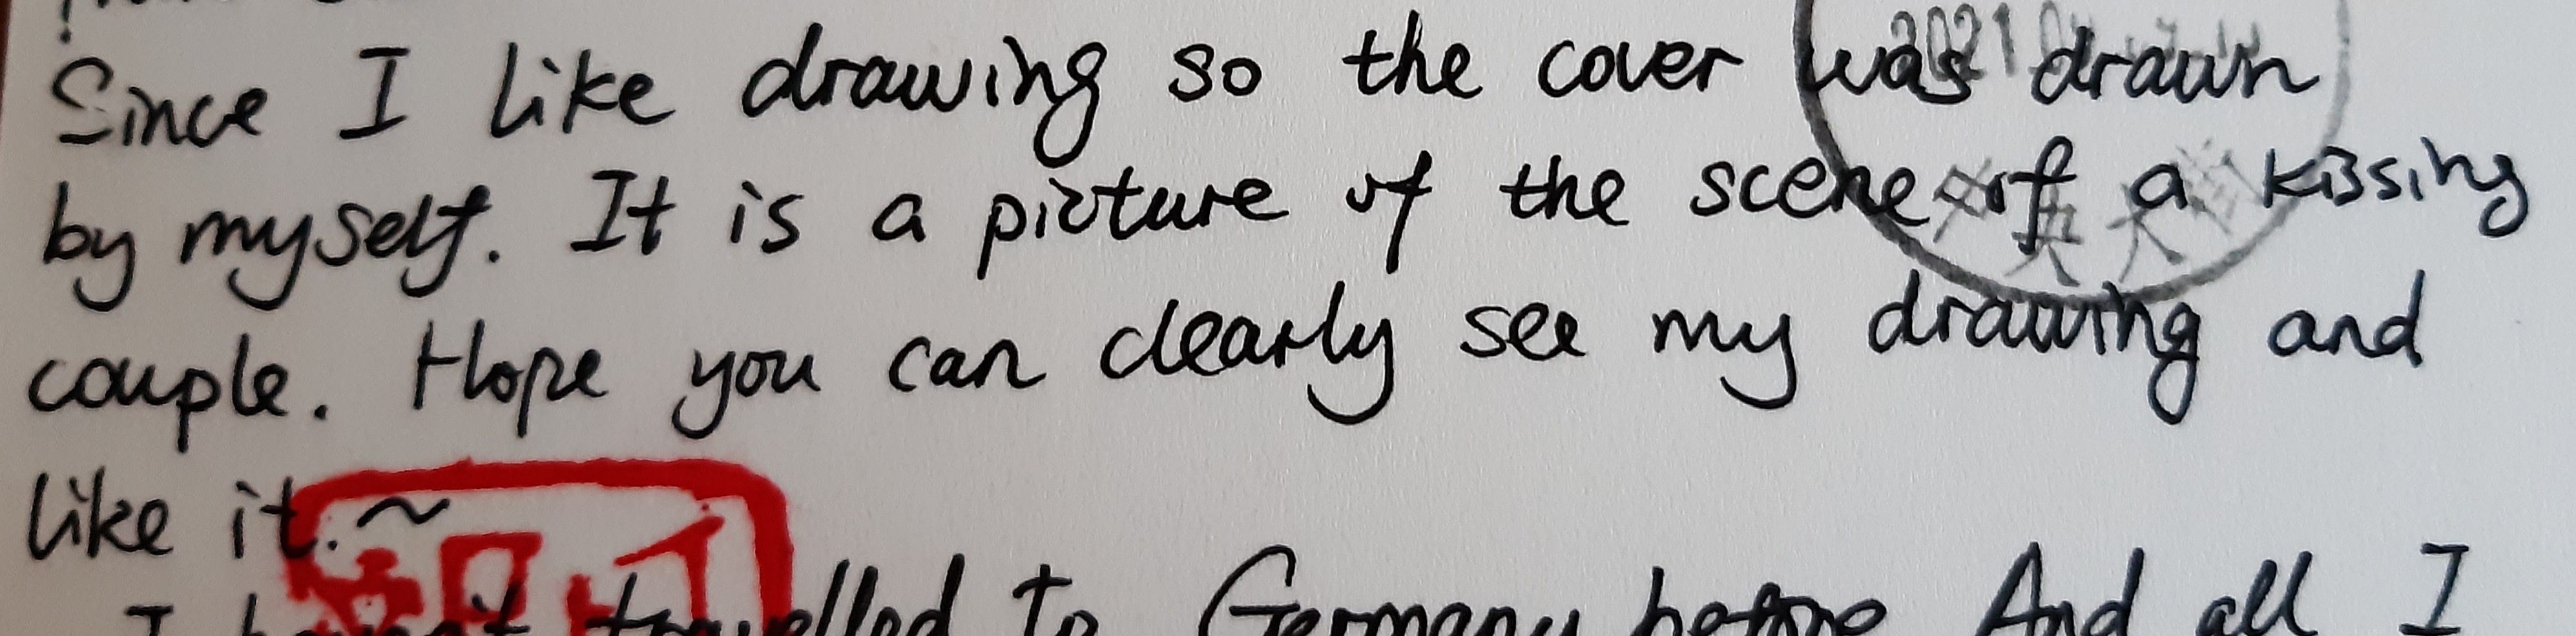 Since I like drawing so the cover was drawn
by myself. It is a picture of the scene of a kissing
couple. Hope you can clearly see my drawing and
like it.~
I haven't travelled to Germany before And all I
2021